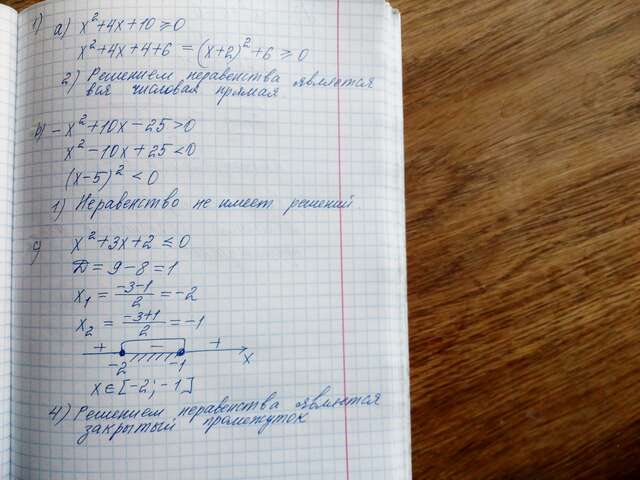 1) а) x²+4x+10≥0
x²+4x+4+6 = (x+2)²+6≥0
2) Решением неравенства является
вся числовая прямая
b) -x²+10x-25>0
x²-10x+25<0
(x-5)²<0
1) Неравенство не имеет решений
x²+3x+2≤0
D=9-8=1
x₁=(-3-1)/2=-2
x₂=(-3+1)/2=-1
+ - +
-2 -1 x
x∈[-2;-1]
4) Решением неравенства является
закрытый промежуток